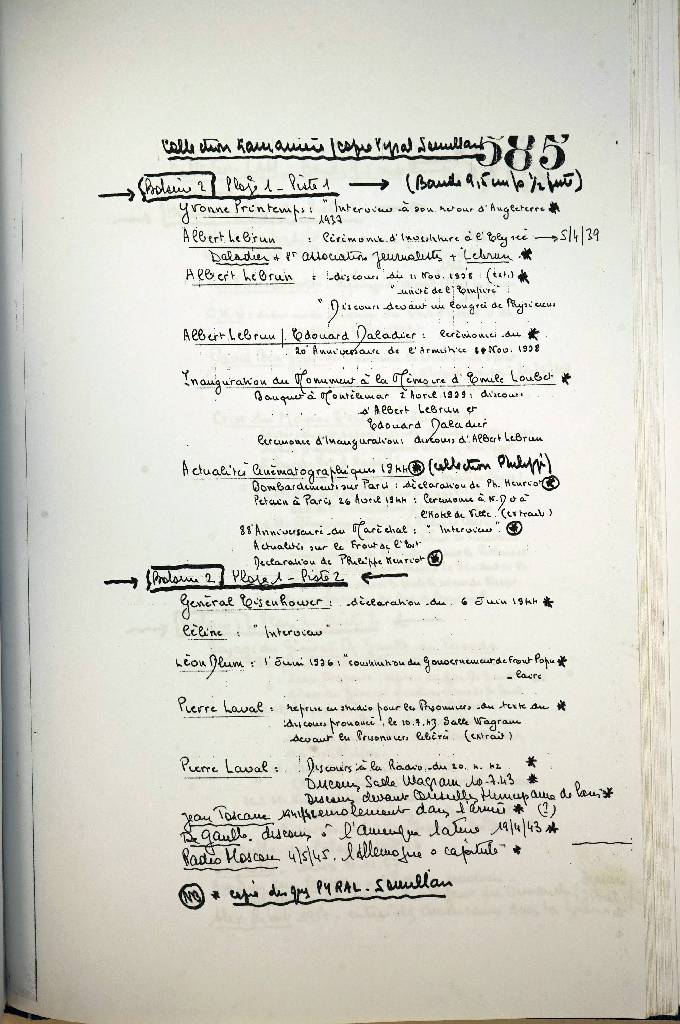 Collection / copie Pyral Semullan
585
Bobine 2 Plage 1 - Piste 1 → (Bande 9,5 cm/s ½ piste)
Yvonne Printemps : "Interview à son retour d'Angleterre *
1937
Albert Lebrun : Cérémonie d'Investiture à l'Elysée → 5/4/39
Daladier + Pt Association Journalistes + Lebrun *
Albert Lebrun : discours du 11 Nov. 1938 : (ext.) *
"unité de l'Empire"
" Discours devant un Congrès de Physiciens
Albert Lebrun / Edouard Daladier : Cérémonies du *
20e Anniversaire de l'Armistice Nov. 1938
Inauguration du Monument à la Mémoire d'Emile Loubet *
Banquet à Montélimar 2 Avril 1939 : discours
d'Albert Lebrun et
Edouard Daladier
Cérémonie d'Inauguration : discours d'Albert Lebrun
Actualités Cinématographiques 1944 * (collection Philippi)
Bombardements sur Paris : déclaration de Ph. Henriot *
Pétain à Paris 26 Avril 1944 : Cérémonie à N.D et à
l'Hotel de Ville. (extrait)
88e Anniversaire du Maréchal : "Interview". *
Actualités sur le Front de l'Est
Déclaration de Philippe Henriot *
→ Bobine 2 Plage 1 - Piste 2 ←
Général Eisenhower : déclaration du 6 Juin 1944 *
Céline : "Interview"
Léon Blum : 1er Juin 1936 : "constitution du Gouvernement de Front Popu *
- laire
Pierre Laval : reprise en studio pour les Prisonniers du texte du *
discours prononcé, le 10.7.43 Salle Wagram
devant les Prisonniers libérés (extrait)
Pierre Laval : Discours à la Radio du 20. 4. 42 *
Discours Salle Wagram 10-7.43 *
Discours devant Conseillers Municipaux de Paris *
Jean Toscane dans l'armée * (?)
De Gaulle. discours à l'amérique latine 19/4/43 *
Radio Moscou 4/5/45. l'Allemagne a capitulé *
NB * copie disques PYRAL - Semullan